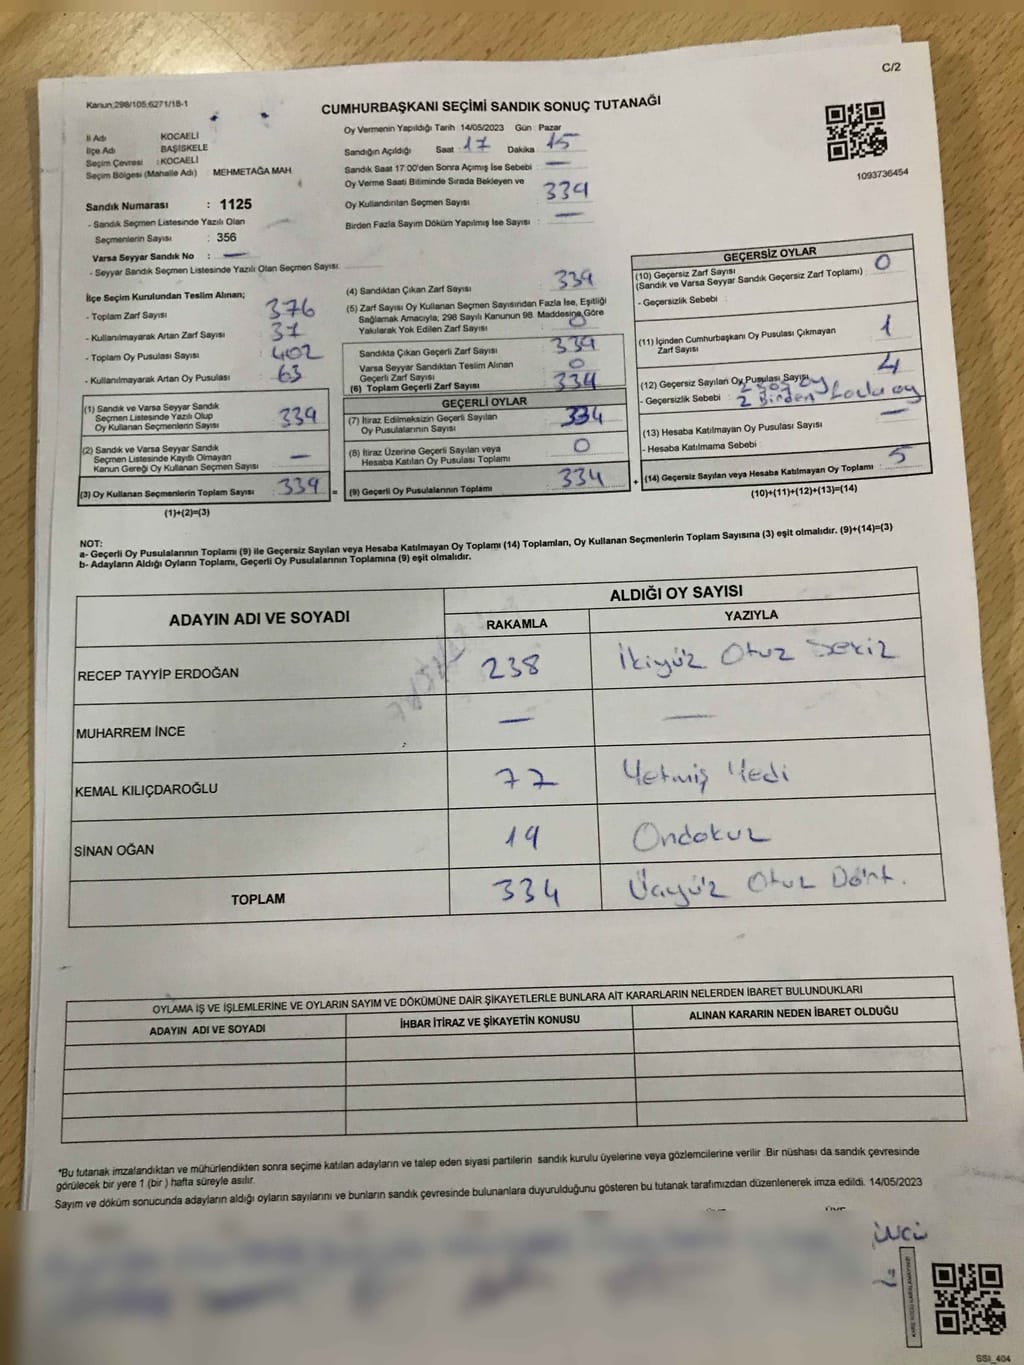 C/2
Kanun:298/105;6271/18-1
CUMHURBAŞKANI SEÇİMİ SANDIK SONUÇ TUTANAĞI
1093736454
İl Adı KOCAELİ
İlçe Adı BAŞİSKELE
Seçim Çevresi : KOCAELİ
Seçim Bölgesi (Mahalle Adı) MEHMETAĞA MAH.
Sandık Numarası : 1125
- Sandık Seçmen Listesinde Yazılı Olan
Seçmenlerin Sayısı : 356
Varsa Seyyar Sandık No : —
- Seyyar Sandık Seçmen Listesinde Yazılı Olan Seçmen Sayısı:
Oy Vermenin Yapıldığı Tarih 14/05/2023 Gün : Pazar
Sandığın Açıldığı Saat : 17 Dakika : 15
Sandık Saat 17:00'den Sonra Açımış İse Sebebi : —
Oy Verme Saati Bitiminde Sırada Bekleyen ve
Oy Kullandırılan Seçmen Sayısı : 339
Birden Fazla Sayım Döküm Yapılmış İse Sayısı : —
İlçe Seçim Kurulundan Teslim Alınan;
- Toplam Zarf Sayısı : 376
- Kullanılmayarak Artan Zarf Sayısı : 37
- Toplam Oy Pusulası Sayısı : 402
- Kullanılmayarak Artan Oy Pusulası : 63
(1) Sandık ve Varsa Seyyar Sandık
Seçmen Listesinde Yazılı Olup
Oy Kullanan Seçmenlerin Sayısı : 339
(2) Sandık ve Varsa Seyyar Sandık
Seçmen Listesinde Kayıtlı Olmayan
Kanun Gereği Oy Kullanan Seçmen Sayısı : —
(3) Oy Kullanan Seçmenlerin Toplam Sayısı : 339 =
(1)+(2)=(3)
(4) Sandıktan Çıkan Zarf Sayısı : 339
(5) Zarf Sayısı Oy Kullanan Seçmen Sayısından Fazla İse, Eşitliği
Sağlamak Amacıyla; 298 Sayılı Kanunun 98. Maddesine Göre
Yakılarak Yok Edilen Zarf Sayısı : 0
Sandıkta Çıkan Geçerli Zarf Sayısı : 339
Varsa Seyyar Sandıktan Teslim Alınan
Geçerli Zarf Sayısı : 0
(6) Toplam Geçerli Zarf Sayısı : 334
GEÇERLİ OYLAR
(7) İtiraz Edilmeksizin Geçerli Sayılan
Oy Pusulalarının Sayısı : 334
(8) İtiraz Üzerine Geçerli Sayılan veya
Hesaba Katılan Oy Pusulası Toplamı : 0
(9) Geçerli Oy Pusulalarının Toplamı : 334 +
GEÇERSİZ OYLAR
(10) Geçersiz Zarf Sayısı
(Sandık ve Varsa Seyyar Sandık Geçersiz Zarf Toplamı) : 0
- Geçersizlik Sebebi :
(11) İçinden Cumhurbaşkanı Oy Pusulası Çıkmayan
Zarf Sayısı : 1
(12) Geçersiz Sayılan Oy Pusulası Sayısı : 4
- Geçersizlik Sebebi : 2 Birden fazla oy
(13) Hesaba Katılmayan Oy Pusulası Sayısı : —
- Hesaba Katılmama Sebebi :
(14) Geçersiz Sayılan veya Hesaba Katılmayan Oy Toplamı : 5
(10)+(11)+(12)+(13)=(14)
NOT:
a- Geçerli Oy Pusulalarının Toplamı (9) ile Geçersiz Sayılan veya Hesaba Katılmayan Oy Toplamı (14) Toplamları, Oy Kullanan Seçmenlerin Toplam Sayısına (3) eşit olmalıdır. (9)+(14)=(3)
b- Adayların Aldığı Oyların Toplamı, Geçerli Oy Pusulalarının Toplamına (9) eşit olmalıdır.
ADAYIN ADI VE SOYADI
ALDIĞI OY SAYISI
RAKAMLA YAZIYLA
RECEP TAYYİP ERDOĞAN 238 İkiyüz Otuz Sekiz
MUHARREM İNCE — —
KEMAL KILIÇDAROĞLU 77 Yetmiş Yedi
SİNAN OĞAN 19 Ondokuz
TOPLAM 334 Üçyüz Otuz Dört.
OYLAMA İŞ VE İŞLEMLERİNE VE OYLARIN SAYIM VE DÖKÜMÜNE DAİR ŞİKAYETLERLE BUNLARA AİT KARARLARIN NELERDEN İBARET BULUNDUKLARI
ADAYIN ADI VE SOYADI İHBAR İTİRAZ VE ŞİKAYETİN KONUSU ALINAN KARARIN NEDEN İBARET OLDUĞU
*Bu tutanak imzalandıktan ve mühürlendikten sonra seçime katılan adayların ve talep eden siyasi partilerin sandık kurulu üyelerine veya gözlemcilerine verilir. Bir nüshası da sandık çevresinde
görülecek bir yere 1 (bir ) hafta süreyle asılır.
Sayım ve döküm sonucunda adayların aldığı oyların sayılarını ve bunların sandık çevresinde bulunanlara duyurulduğunu gösteren bu tutanak tarafımızdan düzenlenerek imza edildi. 14/05/2023
SSİ_404